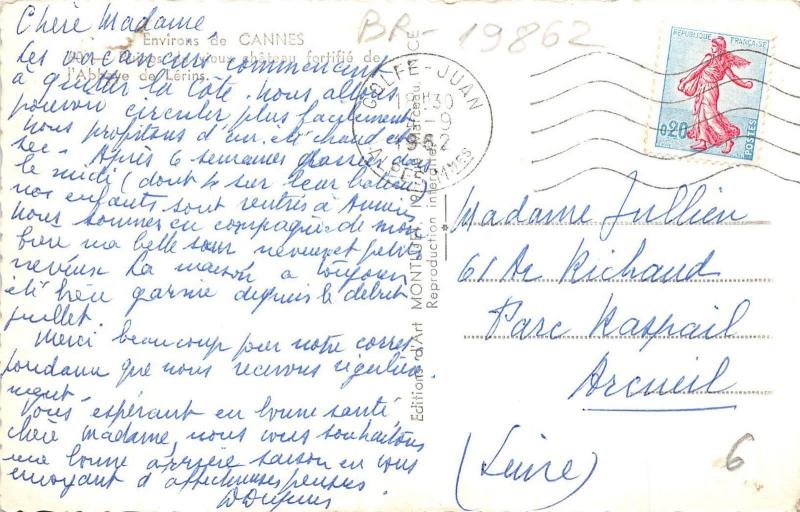 Chère Madame,
Environs de CANNES
château fortifié de
l'Abbaye de Lérins.
Les vacanciers commencent
à quitter la Côte. Nous allons
pouvoir circuler plus facilement
Nous profitons d'un été chaud et
sec. Après 6 semaines passées dans
le midi (dont sur leur bateau)
nos enfants sont rentrés à
Nous sommes en compagnie de mon
frère ma belle sœur neveu et petit
neveux. La maison a toujours
été bien garnie depuis le début
juillet.
Merci beaucoup pour votre corres
pondance que nous recevons régulière
ment.
Vous espérant en bonne santé,
chère Madame, nous vous souhaitons
une bonne arrière saison en vous
envoyant d'affectueuses pensées
BR-19862
GOLFE-JUAN
18H30
1962
ALPES MMES
REPUBLIQUE FRANÇAISE
0,20
POSTES
Editions d'Art
Reproduction interdite
Madame Jullien
61 Av Richaud
Parc Raspail
Arcueil
(Seine)
6